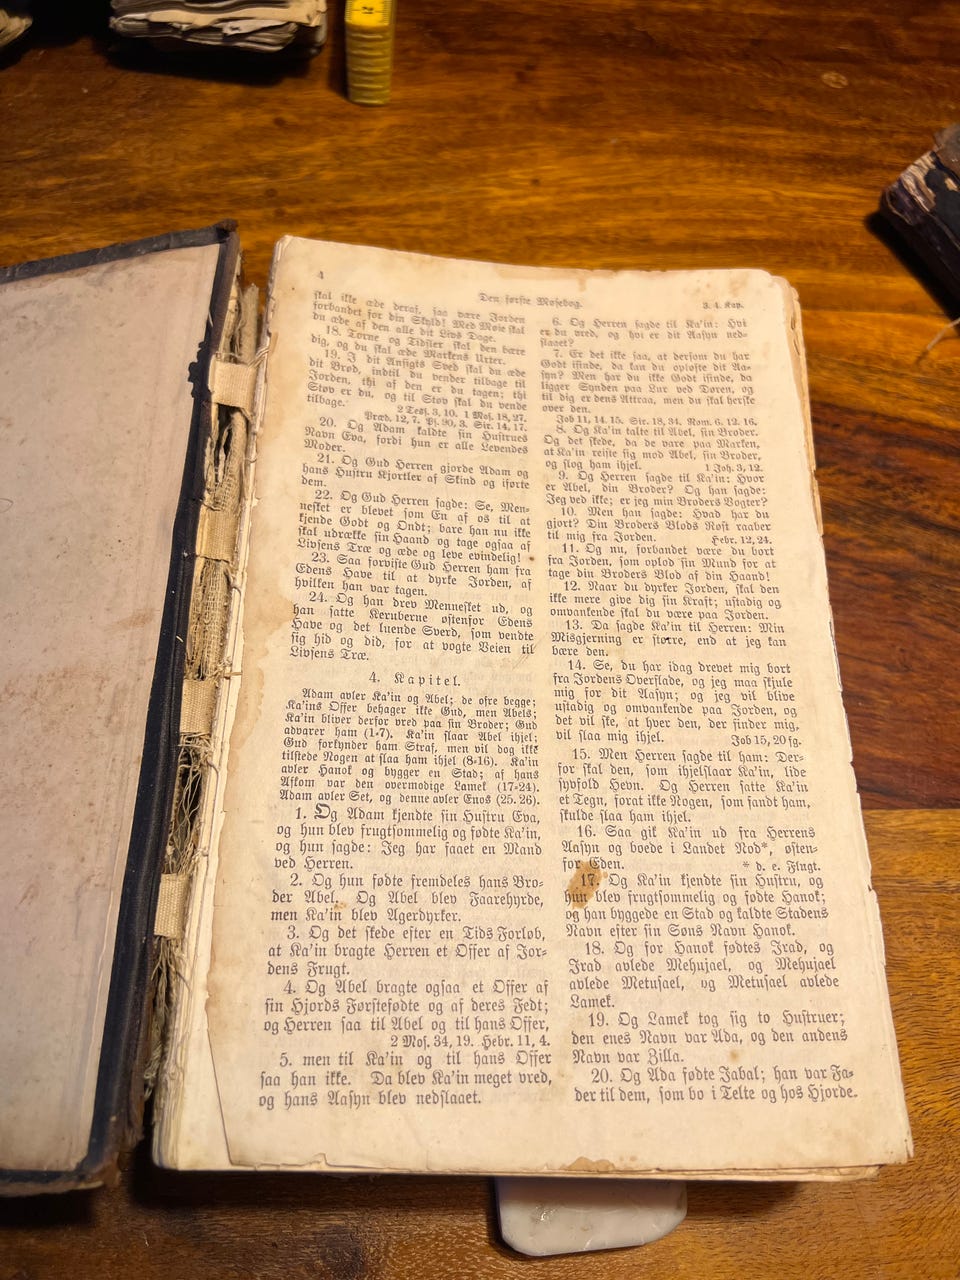 4
Den første Mosebog.
3. 4. Kap.
skal ikke æde deraf, saa være Jorden
forbandet for din Skyld! Med Møie skal
du æde af den alle dit Livs Dage.
18. Torne og Tidsler skal den bære
dig, og du skal æde Markens Urter.
19. I dit Ansigts Sved skal du æde
dit Brød, indtil du vender tilbage til
Jorden, thi af den er du tagen; thi
Støv er du, og til Støv skal du vende
tilbage.
2 Tess. 3, 10. 1 Mos. 18, 27.
Præd. 12, 7. Ps. 90, 3. Sir. 14, 17.
20. Og Adam kaldte sin Hustrues
Navn Eva, fordi hun er alle Levendes
Moder.
21. Og Gud Herren gjorde Adam og
hans Hustru Kjortler af Skind og iførte
dem.
22. Og Gud Herren sagde: Se, Men-
nesket er blevet som En af os til at
kjende Godt og Ondt; bare han nu ikke
skal udrække sin Haand og tage ogsaa af
Livsens Træ og æde og leve evindelig!
23. Saa forviste Gud Herren ham fra
Edens Have til at dyrke Jorden, af
hvilken han var tagen.
24. Og han drev Mennesket ud, og
han satte Keruberne østenfor Edens
Have og det luende Sverd, som vendte
sig hid og did, for at vogte Veien til
Livsens Træ.
4. Kapitel.
Adam avler Ka'in og Abel; de ofre begge;
Ka'ins Offer behager ikke Gud, men Abels;
Ka'in bliver derfor vred paa sin Broder; Gud
advarer ham (1-7). Ka'in slaar Abel ihjel;
Gud forkynder ham Straf, men vil dog ikke
tilstede Nogen at slaa ham ihjel (8-16). Ka'in
avler Hanok og bygger en Stad; af hans
Afkom var den overmodige Lamek (17-24).
Adam avler Set, og denne avler Enos (25. 26).
1. Og Adam kjendte sin Hustru Eva,
og hun blev frugtsommelig og fødte Ka'in,
og hun sagde: Jeg har faaet en Mand
ved Herren.
2. Og hun fødte fremdeles hans Bro-
der Abel. Og Abel blev Faarehyrde,
men Ka'in blev Agerdyrker.
3. Og det skede efter en Tids Forløb,
at Ka'in bragte Herren et Offer af Jor-
dens Frugt.
4. Og Abel bragte ogsaa et Offer af
sin Hjords Førstefødte og af deres Fedt;
og Herren saa til Abel og til hans Offer,
2 Mos. 34, 19. Hebr. 11, 4.
5. men til Ka'in og til hans Offer
saa han ikke. Da blev Ka'in meget vred,
og hans Aasyn blev nedslaaet.
6. Og Herren sagde til Ka'in: Hvi
er du vred, og hvi er dit Aasyn ned-
slaaet?
7. Er det ikke saa, at dersom du har
Godt isinde, da kan du opløfte dit Aa-
syn? Men har du ikke Godt isinde, da
ligger Synden paa Lur ved Døren, og
til dig er dens Attraa, men du skal herske
over den.
Job 11, 14. 15. Sir. 18, 34. Rom. 6. 12. 16.
8. Og Ka'in talte til Abel, sin Broder.
Og det skede, da de vare paa Marken,
at Ka'in reiste sig mod Abel, sin Broder,
og slog ham ihjel. 1 Joh. 3, 12.
9. Og Herren sagde til Ka'in: Hvor
er Abel, din Broder? Og han sagde:
Jeg ved ikke; er jeg min Broders Vogter?
10. Men han sagde: Hvad har du
gjort? Din Broders Blods Røst raaber
til mig fra Jorden. Hebr. 12, 24.
11. Og nu, forbandet være du bort
fra Jorden, som oplod sin Mund for at
tage din Broders Blod af din Haand!
12. Naar du dyrker Jorden, skal den
ikke mere give dig sin Kraft; ustadig og
omvankende skal du være paa Jorden.
13. Da sagde Ka'in til Herren: Min
Misgjerning er større, end at jeg kan
bære den.
14. Se, du har idag drevet mig bort
fra Jordens Overflade, og jeg maa skjule
mig for dit Aasyn; og jeg vil blive
ustadig og omvankende paa Jorden, og
det vil ske, at hver den, der finder mig,
vil slaa mig ihjel. Job 15, 20 fg.
15. Men Herren sagde til ham: Der-
for skal den, som ihjelslaar Ka'in, lide
syvfold Hevn. Og Herren satte Ka'in
et Tegn, forat ikke Nogen, som fandt ham,
skulde slaa ham ihjel.
16. Saa gik Ka'in ud fra Herrens
Aasyn og boede i Landet Nod*, østen-
for Eden. * d. e. Flugt.
17. Og Ka'in kjendte sin Hustru, og
hun blev frugtsommelig og fødte Hanok;
og han byggede en Stad og kaldte Stadens
Navn efter sin Søns Navn Hanok.
18. Og for Hanok fødtes Irad, og
Irad avlede Mehujael, og Mehujael
avlede Metusael, og Metusael avlede
Lamek.
19. Og Lamek tog sig to Hustruer;
den enes Navn var Ada, og den andens
Navn var Zilla.
20. Og Ada fødte Jabal; han var Fa-
der til dem, som bo i Telte og hos Hjorde.